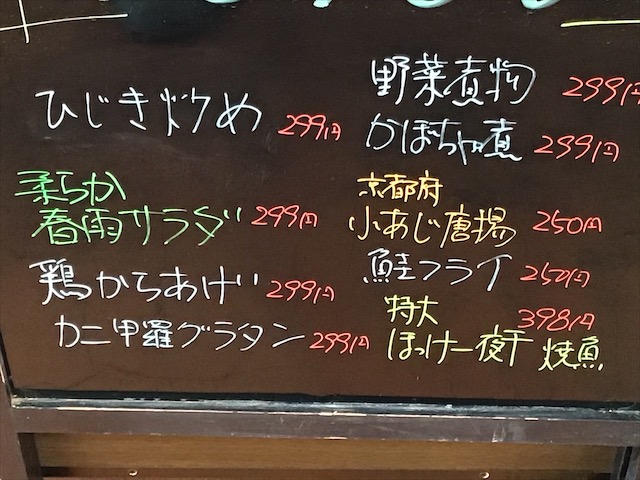 ひじき炒め 299円
柔らか
春雨サラダ 299円
鶏からあげ 299円
カニ甲羅グラタン 299円
野菜煮物 299円
かぼちゃ煮 299円
京都府
小あじ唐揚 250円
鮭フライ 250円
特大 398円
ほっけ一夜干 焼魚